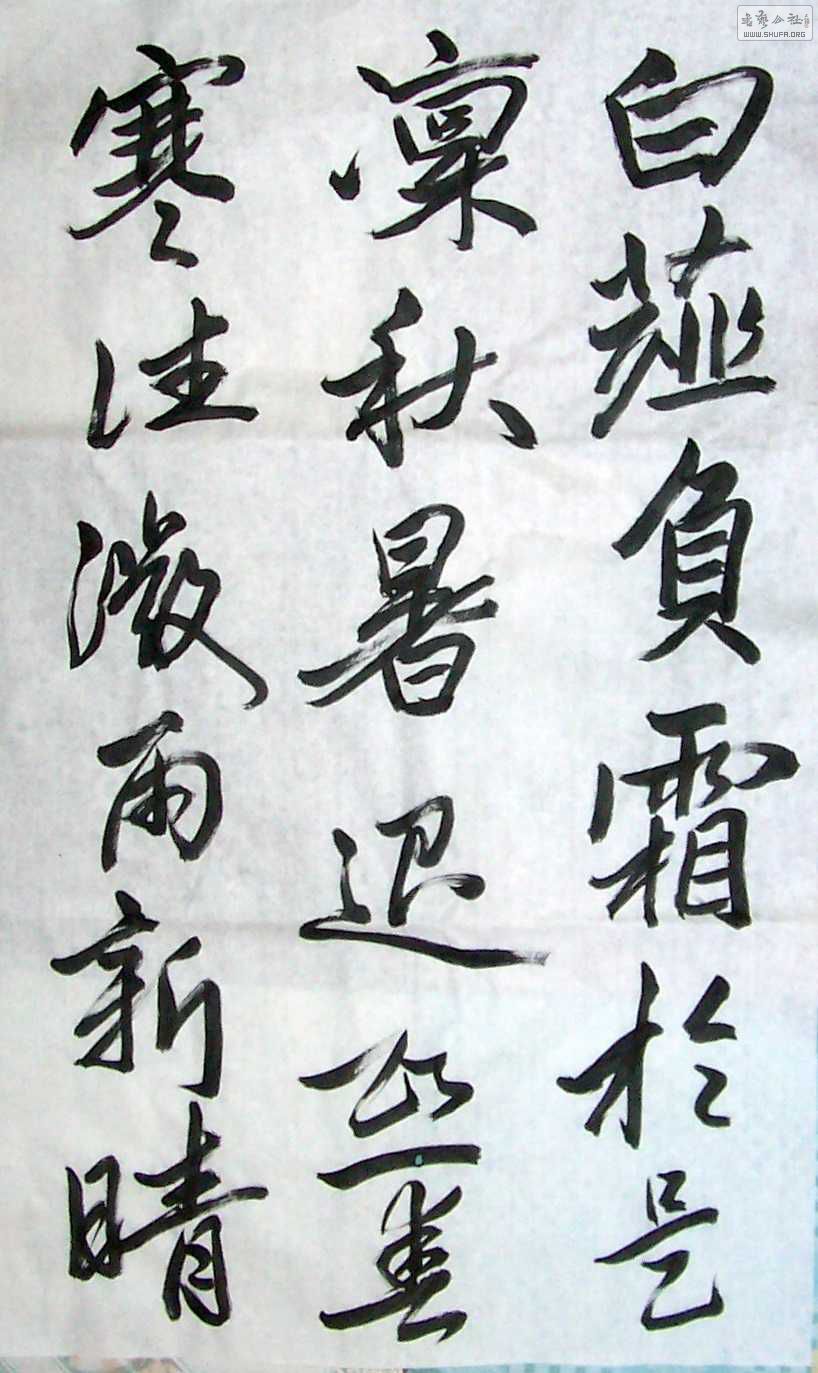 書藝公社
WWW.SHUFA.ORG
白薤負霜於是
凜秋暑退熙春
寒往微雨新晴